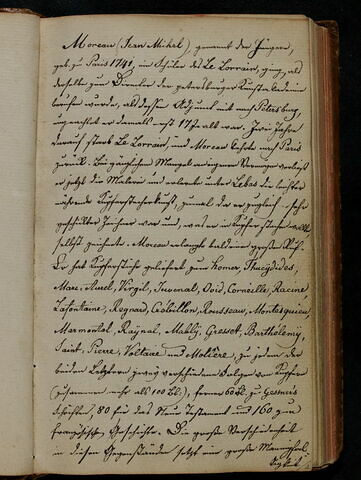 Moreau (Jean Michel), genannt der Jüngere,
geb. zu Paris 1741, ein Schüler des Le Lorrain, ging, als
derselbe zum Director der petersburger Kunstakademie
berufen wurde, als dessen Adjunkt mit nach Petersburg,
ungeachtet er damals erst 17 Jahr alt war. Zwei Jahre
darauf starb Le Lorrain, und Moreau kehrte nach Paris
zurück. Bei gänzlichem Mangel an eigenem Vermögen verließ
er jetzt die Malerei und erlernte unter Lebas die leichter
nährende Kupferstecherkunst, zumal da er zugleich sehr
geschickter Zeichner war und, was er in Kupfer stechen wollte
selbst zeichnete. Moreau erlangte bald einen großen Ruf.
Er hat Kupferstiche geliefert zum Homer, Thucydides,
Marc. Aurel, Virgil, Juvenal, Ovid, Corneille, Racine
Lafontaine, Regnard, Crébillon, Rousseau, Montesquieu
Marmontel, Raynal, Mably, Gresset, Barthélemy,
Saint-Pierre, Voltaire und Molière, zu jedem der
beiden Letztern zwey verschiedene Folgen von Kupfern
(zusammen mehr als 100 Bl.), ferner 60 Bl. zu Gesners
Schriften, 80 für das Neue Testament und 160 zur
französischen Geschichte. Die große Verschiedenheit
in diesen Gegenständen setzt eine große Mannichfal-
tigkeit